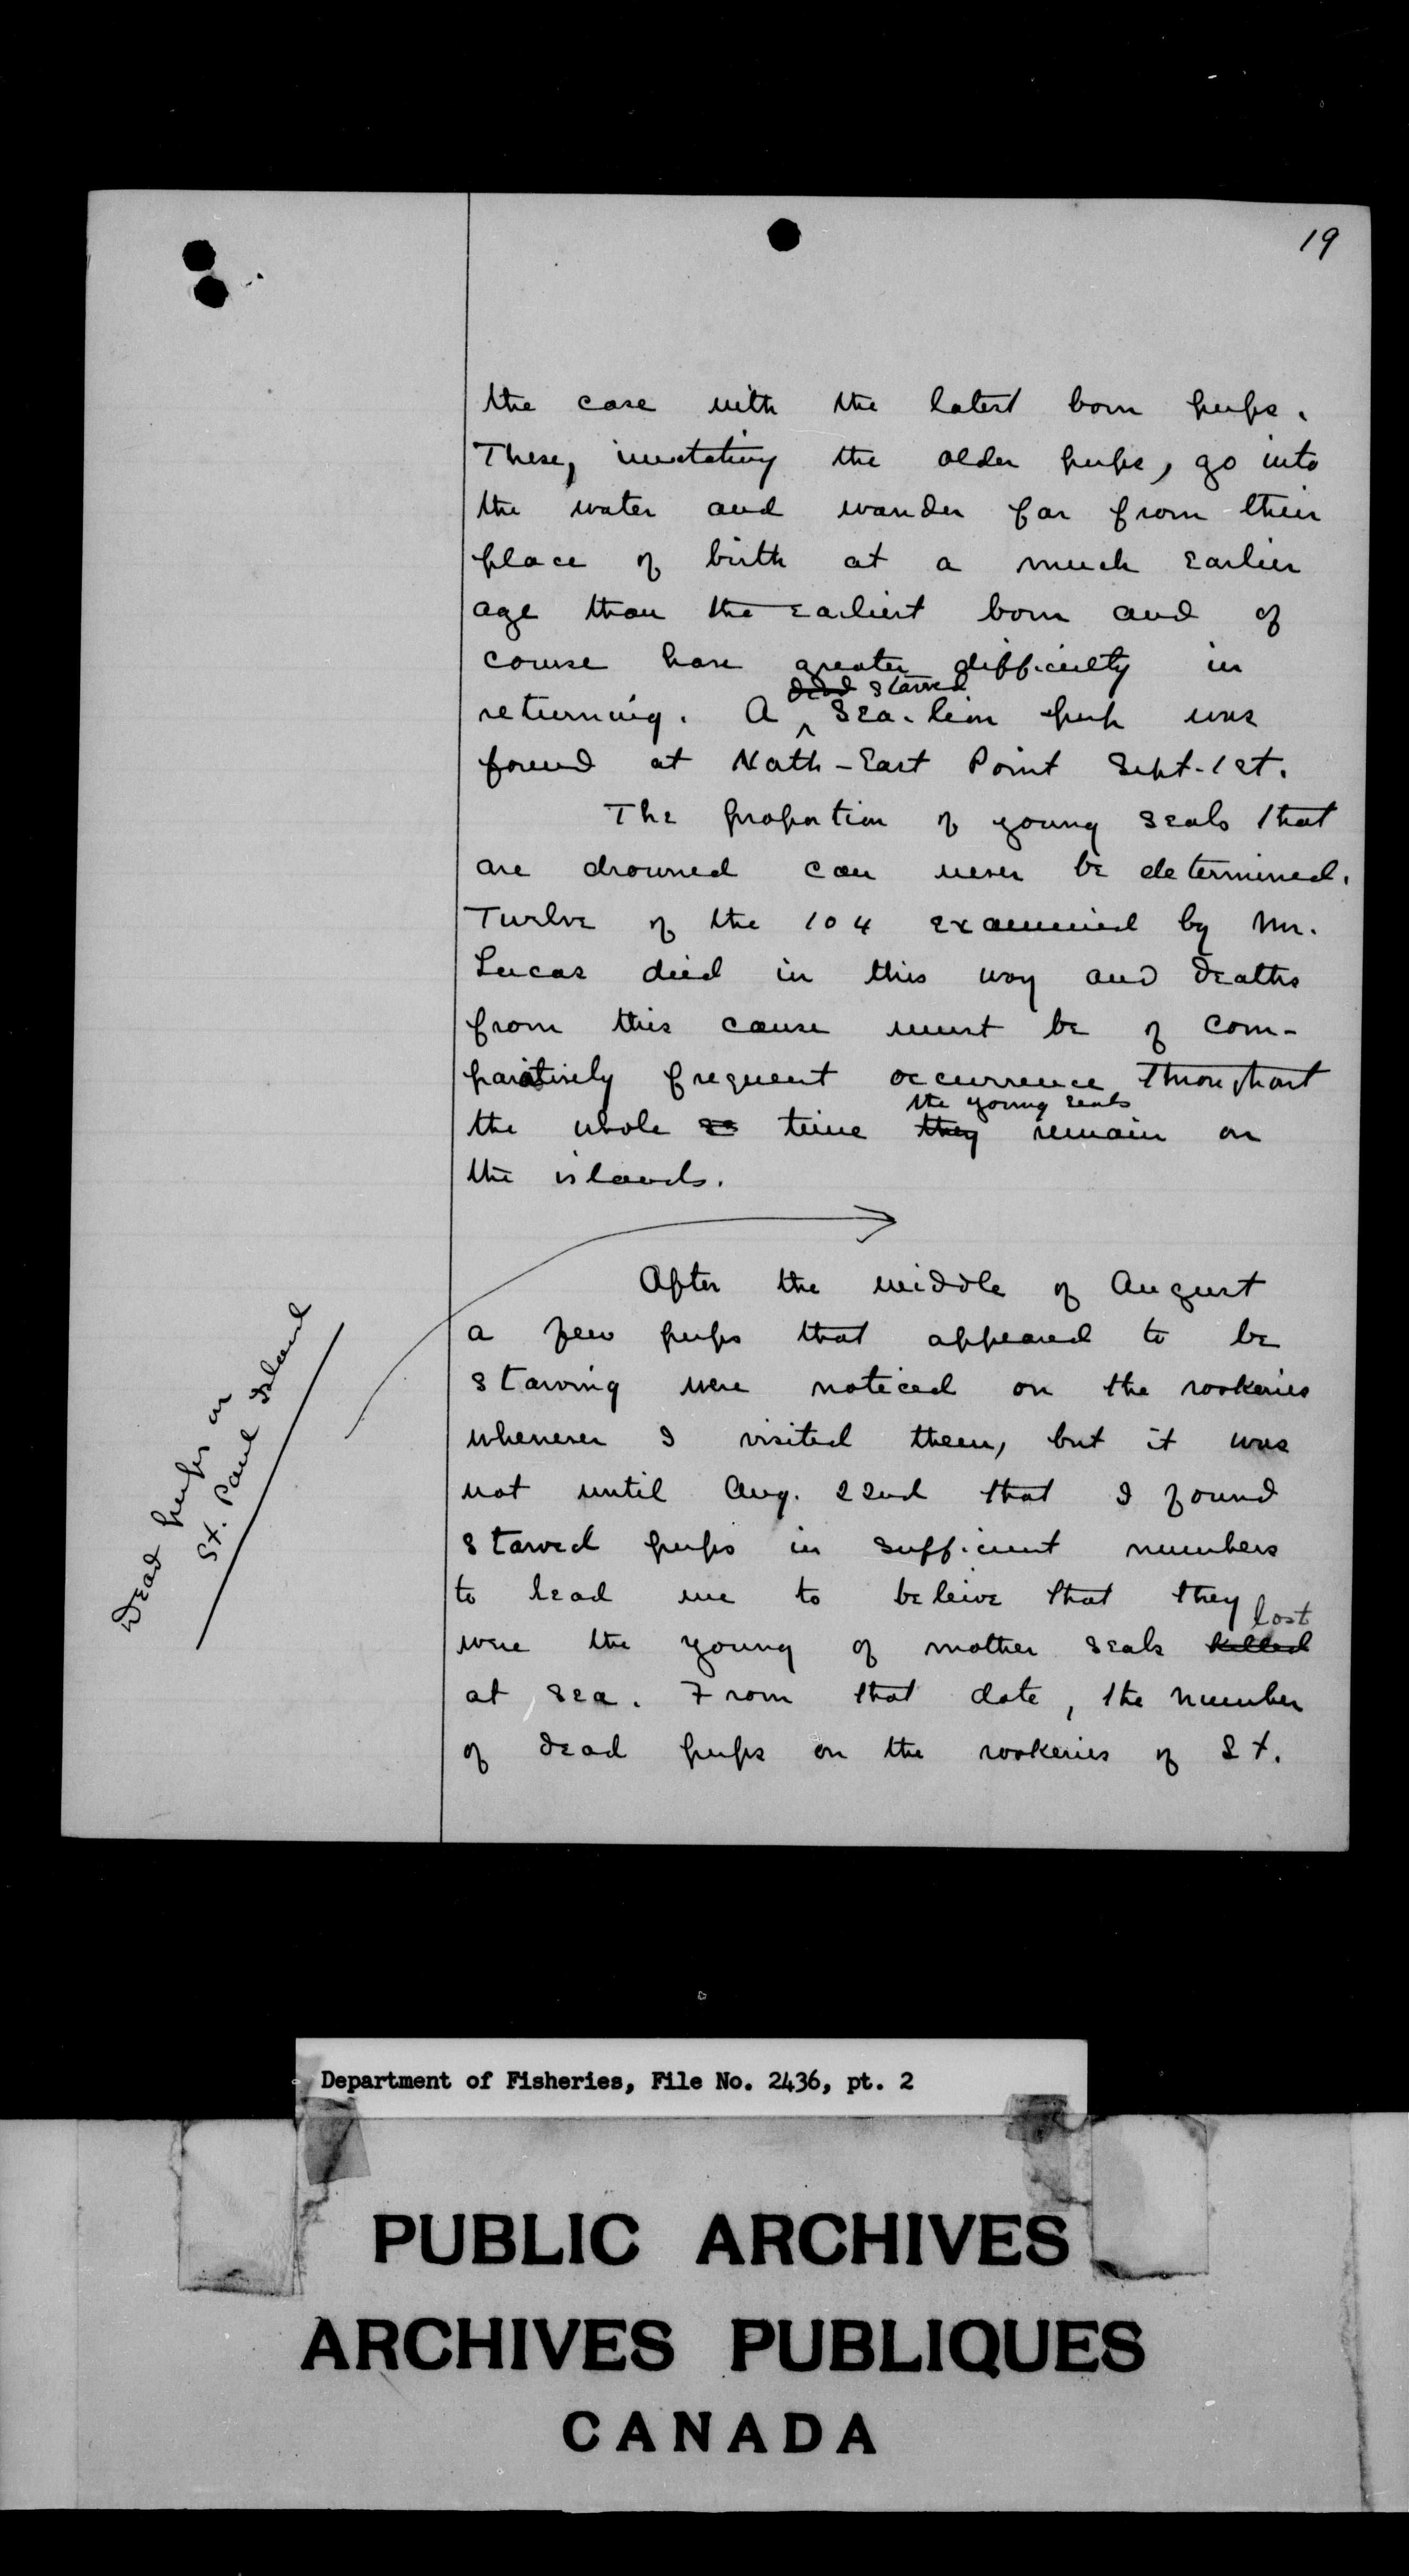 19
the case with the latest born pups.
These, imatating the older pups, go into
the water and wander far from their
place of birth at a much earlier
age than the earliest born and of
course have greater difficulty in
dead starved
returning. A ^ sea-lion pup was
found at North-East Point Sept. 1st.
The proportion of young seals that
are drowned can never be determined.
Twelve of the 104 examined by Mr.
Lucas died in this way and deaths
from this cause must be of com-
paratively frequent occurrence throughout
the young seals
the whole se time they remain on
the islands.
Dead pups on
St. Paul Island
After the middle of August
a few pups that appeared to be
starving were noticed on the rookeries
whenever I visited them, but it was
not until Aug. 22nd that I found
starved pups in sufficient numbers
to lead me to beleive that they
lost
were the young of mother seals killed
at sea. From that date, the number
of dead pups on the rookeries of St.
Department of Fisheries, File No. 2436, pt. 2
PUBLIC ARCHIVES
ARCHIVES PUBLIQUES
CANADA